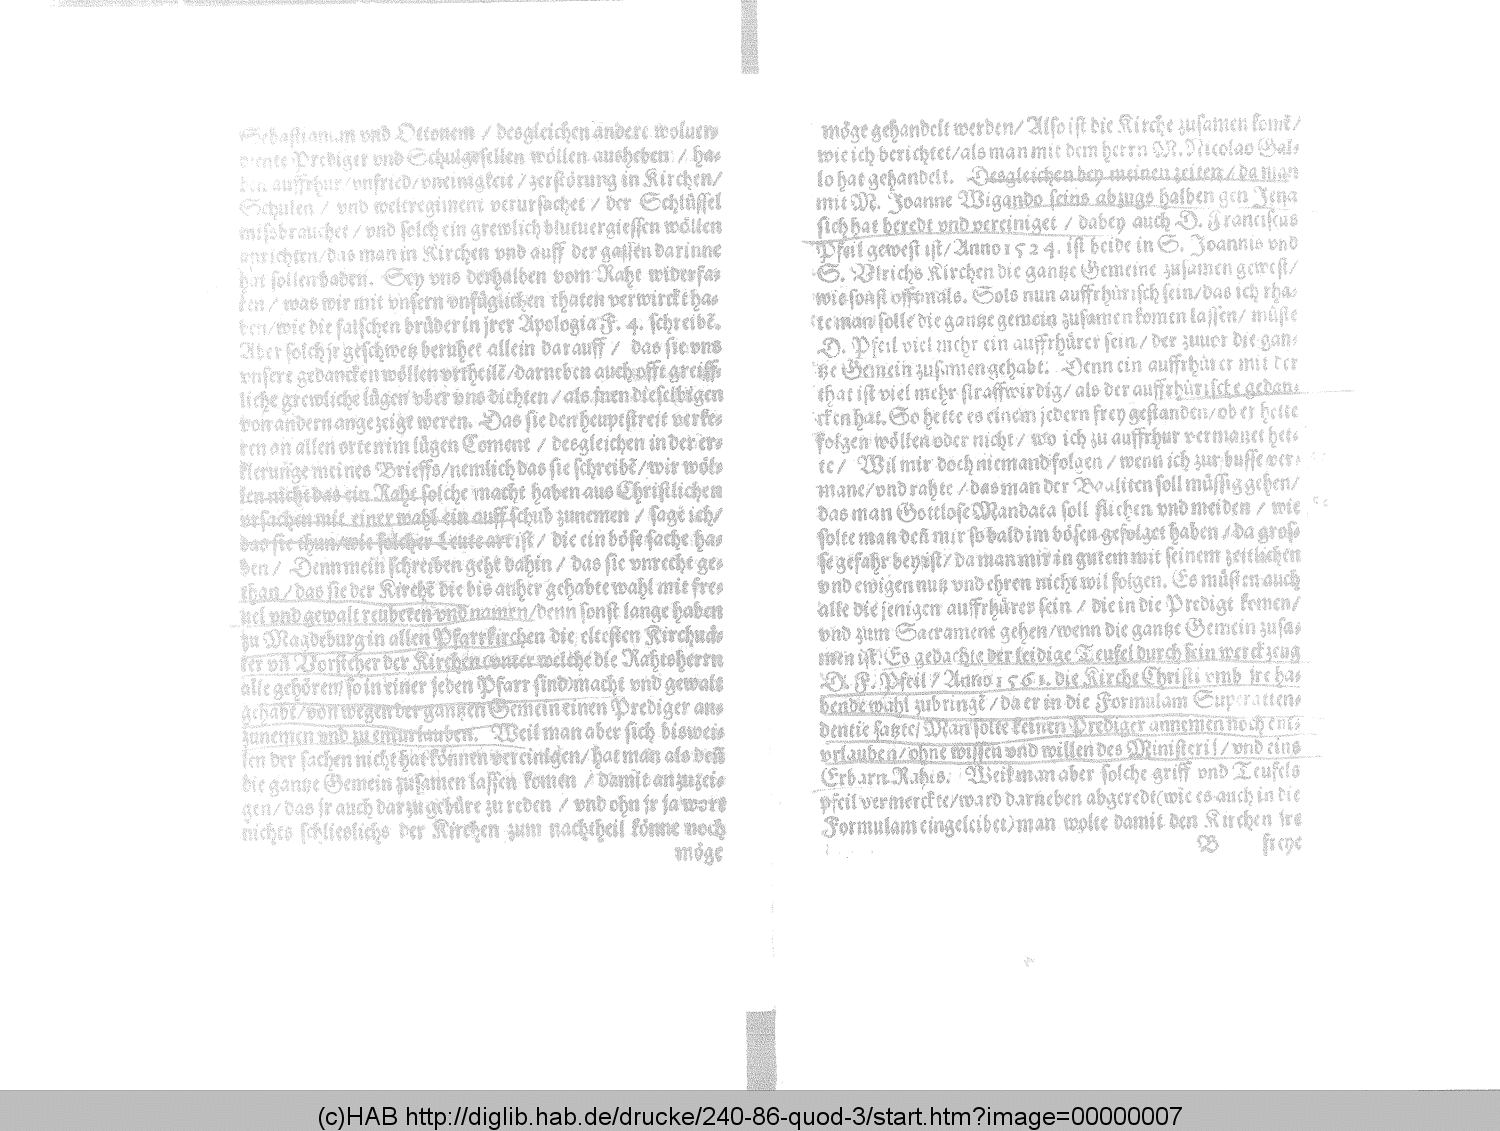 Sebastianum vnd Ottonem / desgleichen andere woluer⸗
diente Prediger vnd Schulgesellen wöllen ausheben / ha⸗
ben auffrhur/vnfried/vneinigkeit / zerstörung in Kirchen/
Schulen / vnd weltregiment verursachet / der Schlüssel
missbrauchet / vnd solch ein grewlich blutuergiessen wöllen
anrichten/das man in Kirchen vnd auff der gassen darinne
hat sollen baden. Sey vns derhalben vom Raht widerfa⸗
ren / was wir mit vnsern vnfüglichen thaten verwirckt ha⸗
ben/wie die falschen brüder in jrer Apologia F. 4. schreibē.
Aber solch jr geschwetz beruhet allein darauff / das sie vns
vnsere gedancken wöllen vrtheilē/darneben auch offt greiff⸗
liche grewliche lügen vber vns dichten / als jnen dieselbigen
von andern angezeigt weren. Das sie den heuptstreit verke⸗
ren an allen orten im lügen Coment / desgleichen in der er⸗
klerunge meines Brieffs/nemlich das sie schreibē/wir wöl⸗
len nicht das ein Raht solche macht haben aus Christlichen
vrsachen mit einer wahl ein auffschub zunemen / sage ich/
das sie thun/wie solcher Leute art ist / die ein böse sache ha⸗
ben / Denn mein schreiben geht dahin / das sie vnrecht ge⸗
than/das sie der Kirchē die bis anher gehabte wahl mit fre⸗
uel vnd gewalt reubeten vnd namen/denn sonst lange haben
zu Magdeburg in allen Pfarrkirchen die eltesten Kirchuä⸗
ter vñ Vorsteher der Kirchen/vnter welche die Rahtsherrn
alle gehören/so in einer jeden Pfarr sind/macht vnd gewalt
gehabt/von wegen der gantzen Gemein einen Prediger an⸗
zunemen vnd zu enturlauben. Weil man aber sich bisweis
len der sachen nicht hat können vereinigen/hat man als deñ
die gantze Gemein zusamen lassen komen / damit anzuzei⸗
gen/das jr auch darzu gebüre zu reden / vnd ohn jr ja wort
nichts schlieslichs der Kirchen zum nachtheil könne noch
möge
möge gehandelt werden/Also ist die Kirche zusamen komē/
wie ich berichtet/als man mit dem herrn M. Nicolao Gal⸗
lo hat gehandelt. Desgleichen bey meinen zeiten / da man
mit M. Joanne Wigando seins abzugs halben gen Jena
sich hat beredt vnd vereiniget / dabey auch D. Franciscus
Pfeil gewest ist/Anno 1524. ist beide in S. Joannis vnd
S. Vlrichs Kirchen die gantze Gemeine zusamen gewest/
wie sonst offtmals. Sols nun auffrhürisch sein/das ich rha⸗
te man solle die gantze gemein zusamen komen lassen/ müste
D. Pfeil viel mehr ein auffrhürer sein / der zuuor die gan⸗
tze Gemein zusamen gehabt. Denn ein auffrhürer mit der
that ist viel mehr straffwirdig/ als der auffrhürische gedan⸗
cken hat. So hette es einem jedern frey gestanden/ob er hette
folgen wöllen oder nicht / wo ich zu auffrhur vermanet het⸗
te / Wil mir doch niemand folgen / wenn ich zur busse ver⸗
mane/vnd rahte / das man der Baaliten soll müssig gehen/
das man Gottlose Mandata soll fliehen vnd meiden / wie
solte man deñ mir so bald im bösen gefolget haben / da gros⸗
se gefahr bey ist/da man mir in gutem mit seinem zeitlichen
vnd ewigen nutz vnd ehren nicht wil folgen. Es müsten auch
alle die jenigen auffrhürer sein / die in die Predigt komen/
vnd zum Sacrament gehen/wenn die gantze Gemein zusa⸗
men ist. Es gedachte der leidige Teufel durch sein werckzeug
D. F. Pfeil / Anno 1561. die Kirche Christi vmb jre ha⸗
bende wahl zubringē / da er in die Formulam Superatten⸗
dentie satzte/ Man solte keinen Prediger annemen noch ent⸗
vrlauben/ohne wissen vnd willen des Ministerij / vnd eins
Erbarn Rahts. Weil man aber solche griff vnd Teufels
pfeil vermerckte/ward darneben abgeredt(wie es auch in die
Formulam eingeleibet)man wolte damit den Kirchen jre
B freye
(c)HAB http://diglib.hab.de/drucke/240-86-quod-3/start.htm?image=00000007